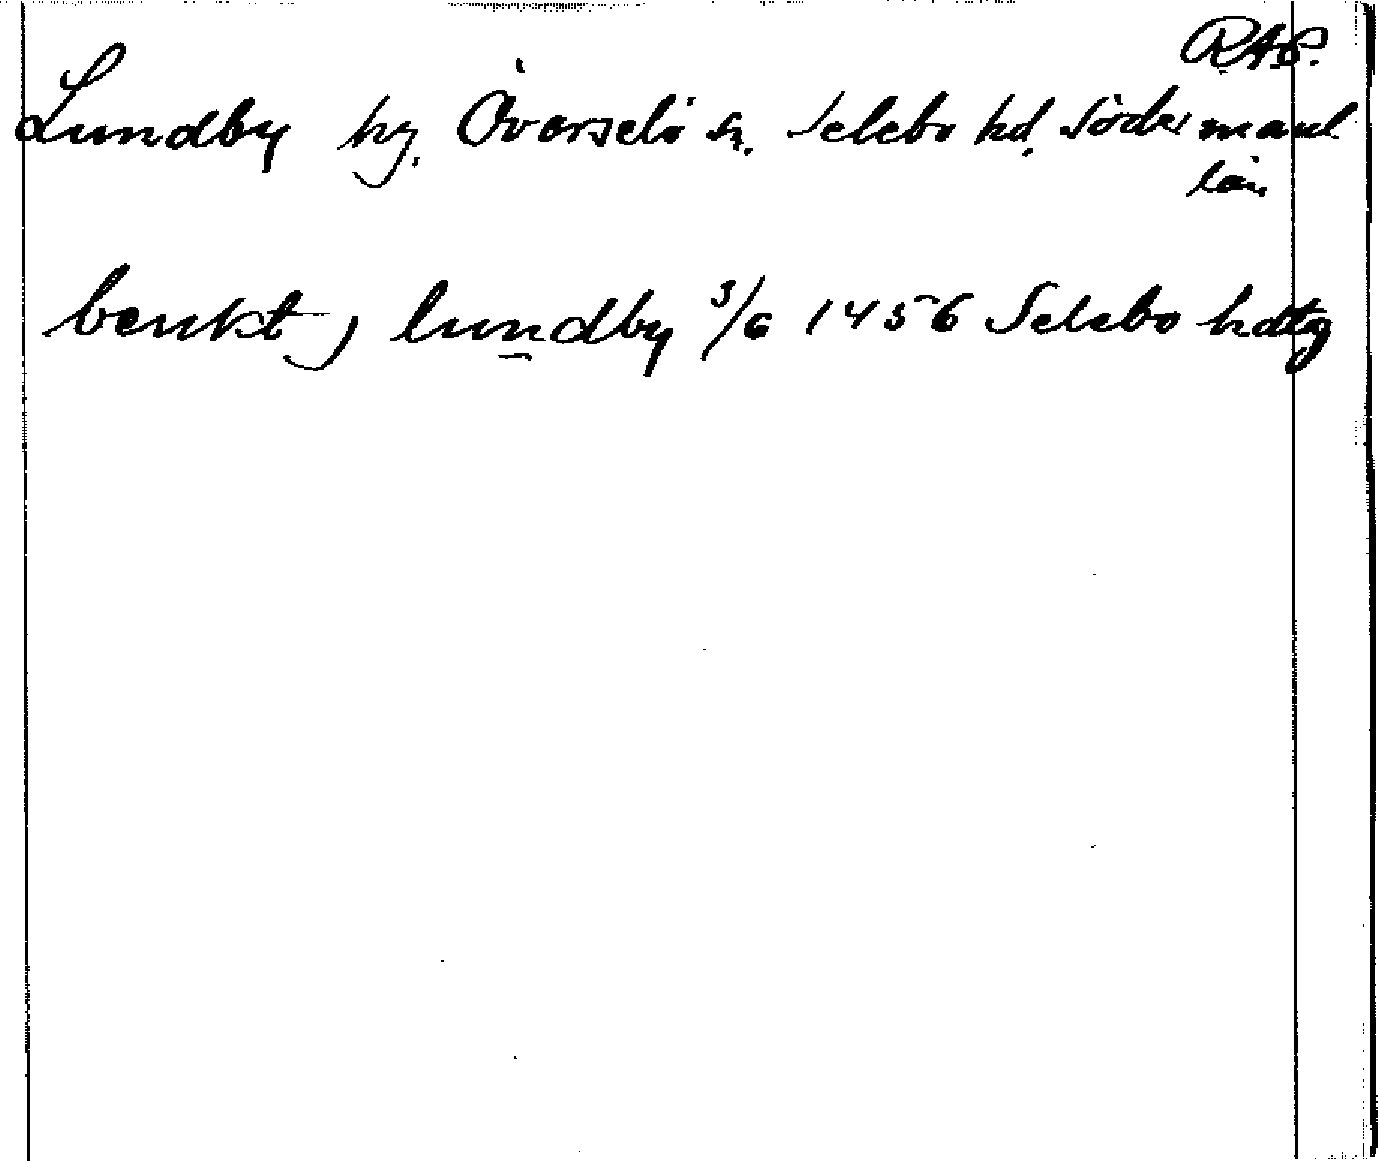 RAP.
Lundby by, Överselö sn. Selebo hd. Södermanl
län
benkt j lundby 3/6 1456 Selebo hdtg